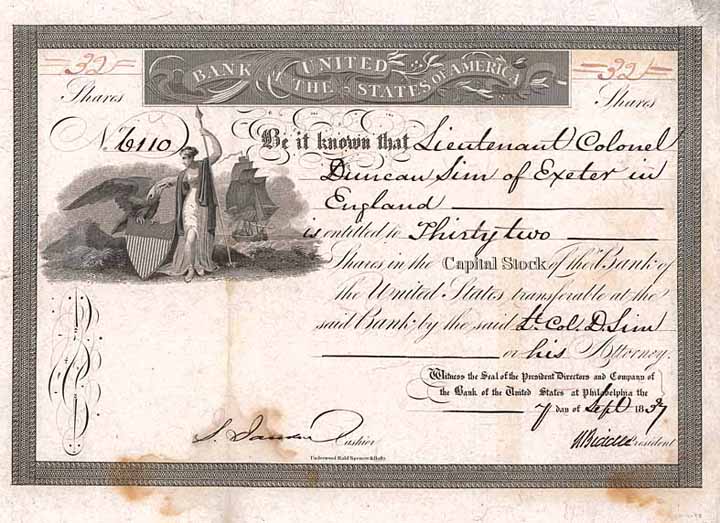 BANK OF THE UNITED STATES OF AMERICA
32 32
Shares Shares
No. 6110 Be it known that Lieutenant Colonel
Duncan Sim of Exeter in
England
is entitled to Thirty two
Shares in the Capital Stock of the Bank of
the United States transferable at the
said Bank by the said Lt. Col. D. Sim
or his Attorney.
Witness the Seal of the President Directors and Company of
the Bank of the United States at Philadelphia the
7 day of Sept 1837
Cashier N Biddle President
Underwood Bald Spencer & Hufty